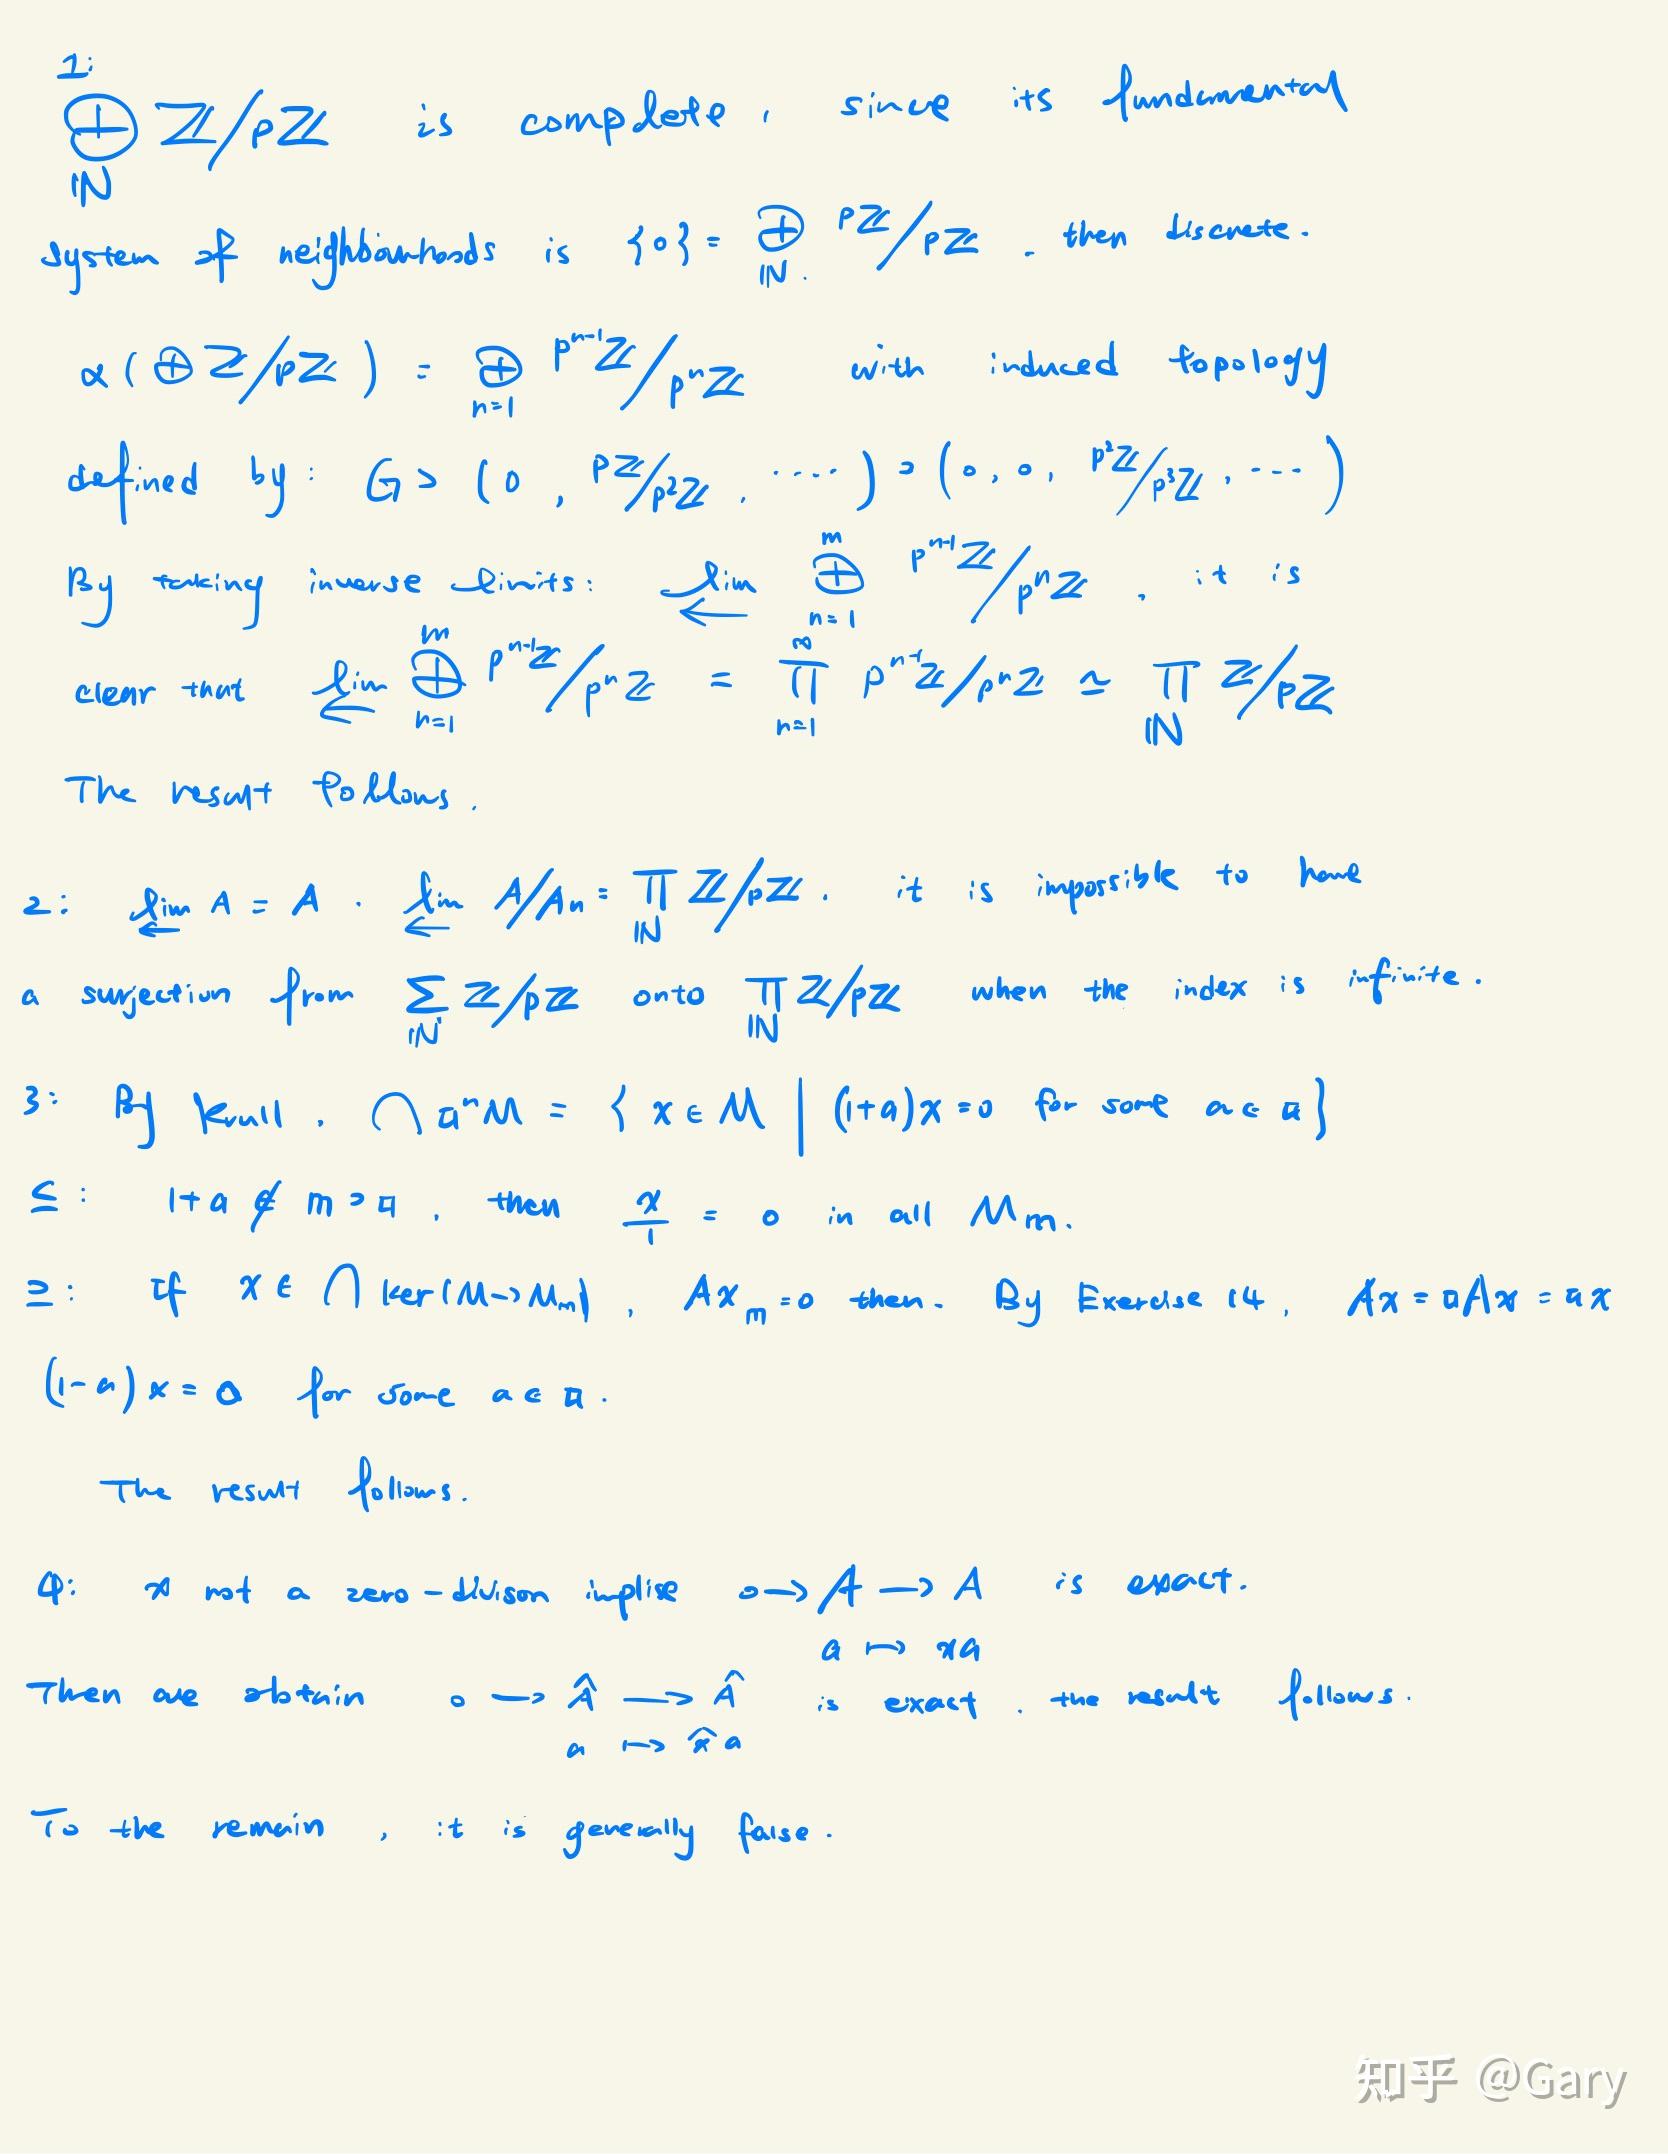 1:
⊕_ℕ ℤ/pℤ is complete, since its fundamental
system of neighbourhoods is {0} = ⊕_ℕ. pℤ/pℤ. then discrete.
α(⊕ ℤ/pℤ) = ⊕_{n=1} p^{n-1}ℤ/p^nℤ with induced topology
defined by: G > (0, pℤ/p²ℤ, ....) > (0, 0, p²ℤ/p³ℤ, ...)
By taking inverse limits: lim← ⊕_{n=1}^m p^{n-1}ℤ/p^nℤ, it is
clear that lim← ⊕_{n=1}^m p^{n-1}ℤ/p^nℤ = ∏_{n=1}^∞ p^{n-1}ℤ/p^nℤ ≃ ∏_ℕ ℤ/pℤ
The result follows.
2: lim← A = A. lim← A/A_n = ∏_ℕ ℤ/pℤ. it is impossible to have
a surjection from Σ_ℕ ℤ/pℤ onto ∏_ℕ ℤ/pℤ when the index is infinite.
3: By Krull, ⋂ 𝔞^n M = {x ∈ M | (1+a)x = 0 for some a ∈ 𝔞}
⊆: 1+a ∉ m ⊃ 𝔞, then x/1 = 0 in all M_m.
⊇: If x ∈ ⋂ ker(M→M_m), Ax_m = 0 then. By Exercise 14, Ax = 𝔞Ax = 𝔞x
(1-a)x = 0 for some a ∈ 𝔞.
The result follows.
4: x not a zero-divison implise 0→A→A is exact.
a ↦ xa
Then we obtain 0 → Â → Â is exact. the result follows.
a ↦ x̂a
To the remain, it is generally false.
知乎 @Gary